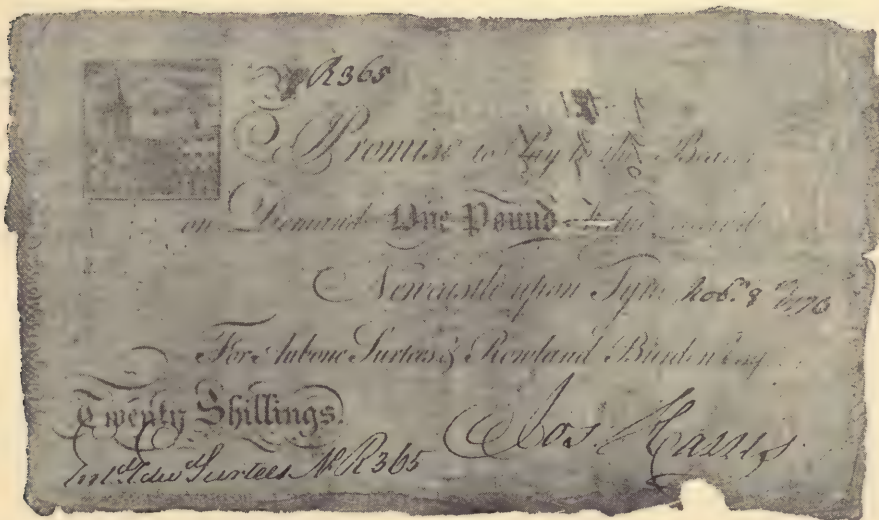 R365
Promise to Pay to the Bearer
on Demand One Pound
Newcastle upon Tyne Nov.r 8
For Aubone Surtees & Rowland Burdon Esq
Twenty Shillings.
Ent.d Edw.d Surtees No R365 Jos. Harris